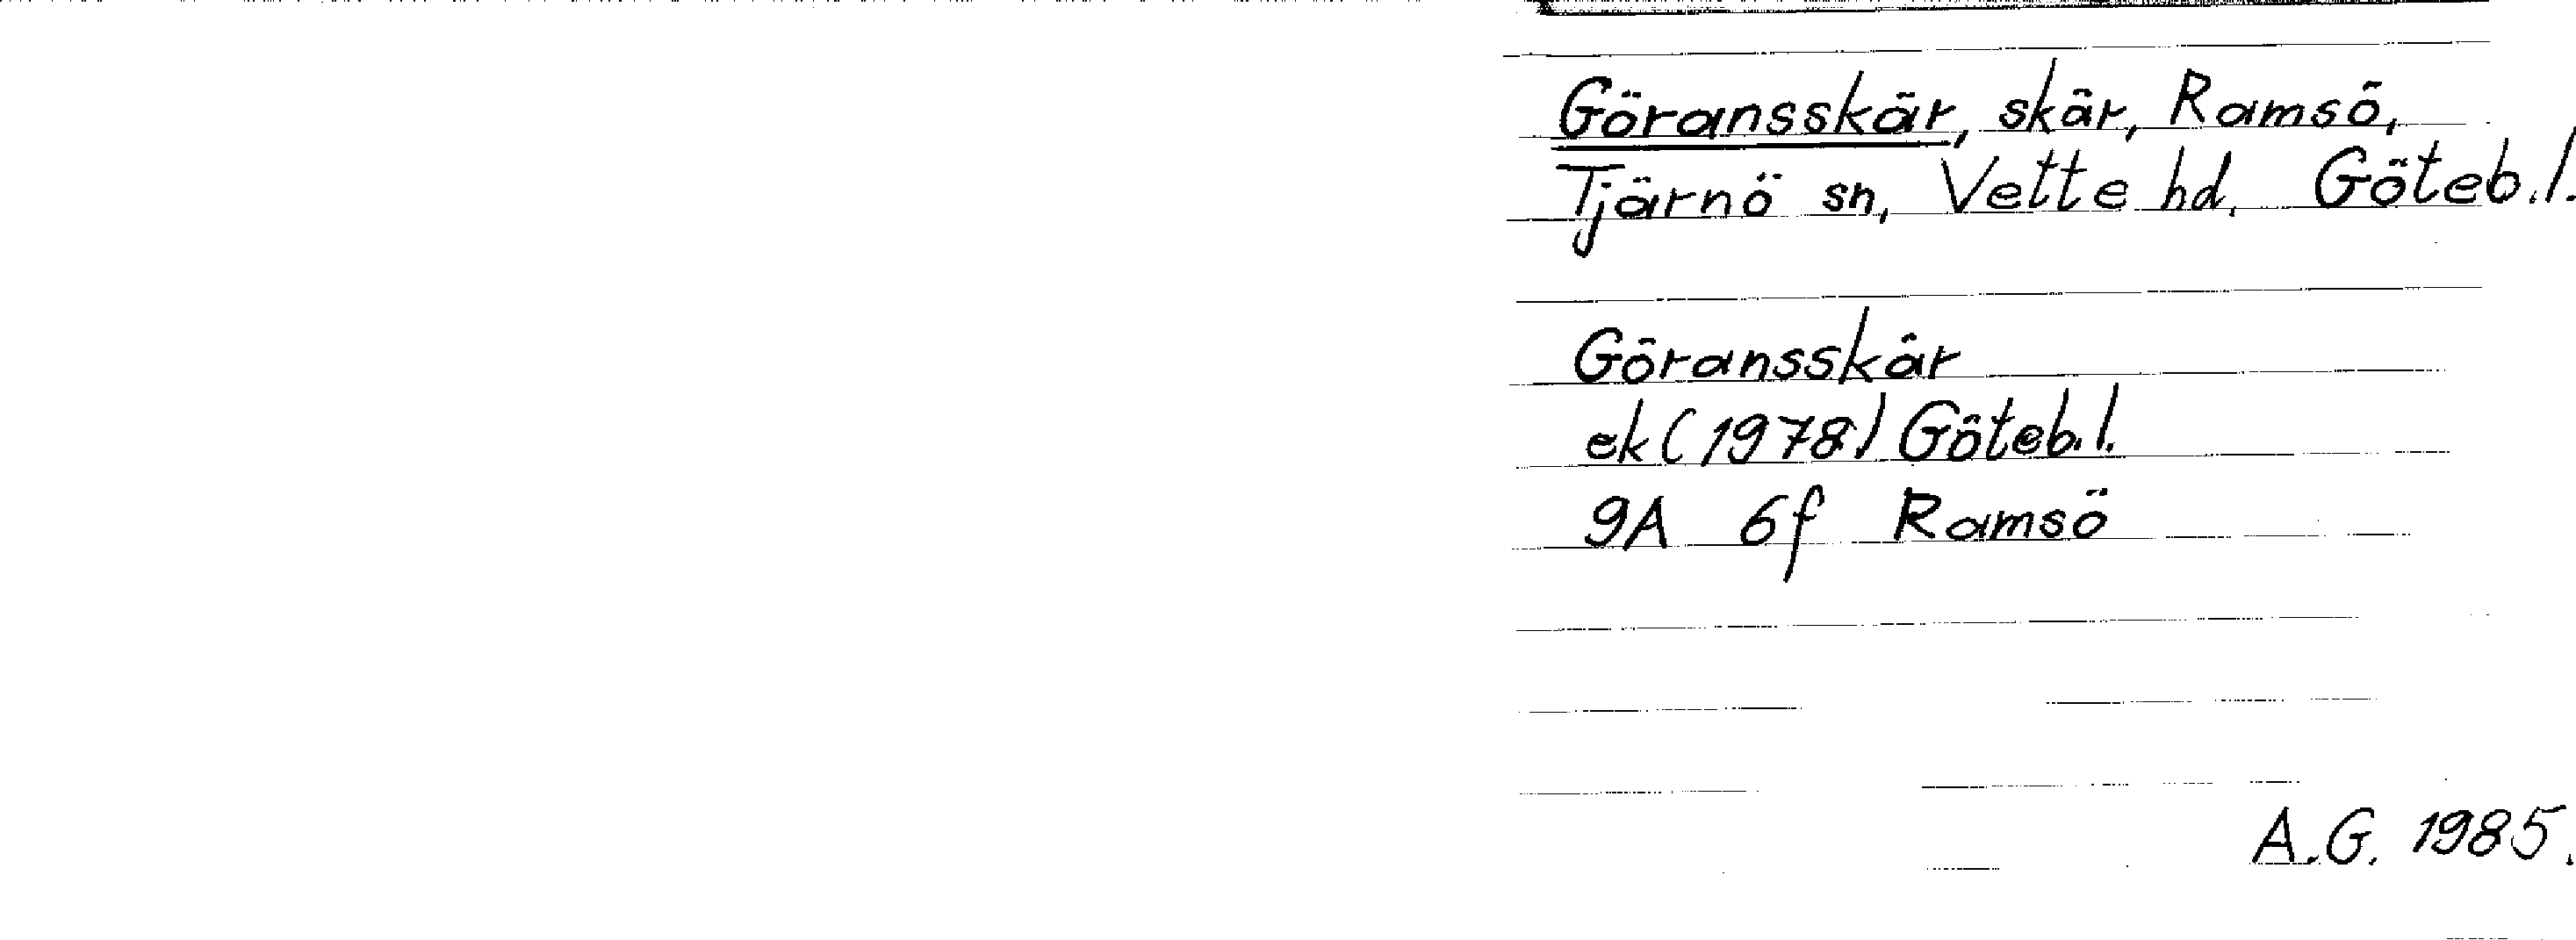 Göransskär, skär, Ramsö,
Tjärnö sn, Vette hd, Göteb.l.
Göransskär
ek (1978) Göteb.l.
9A 6f Ramsö
A.G. 1985.